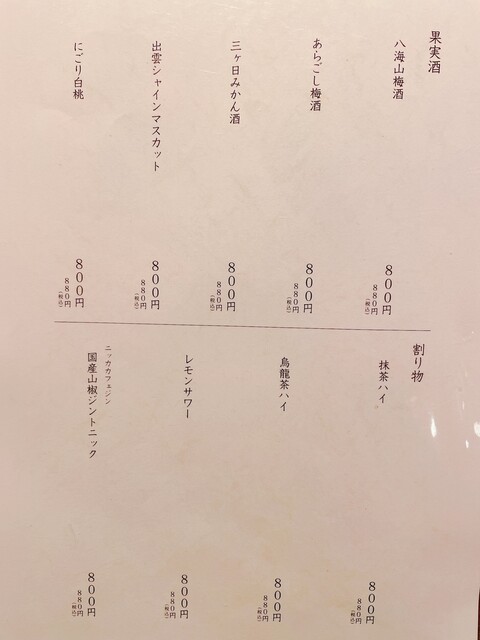 果実酒
八海山梅酒
800円
880円
(税込)
あらごし梅酒
800円
880円
(税込)
三ヶ日みかん酒
800円
880円
(税込)
出雲シャインマスカット
800円
880円
(税込)
にごり白桃
800円
880円
(税込)
割り物
抹茶ハイ
800円
880円
(税込)
烏龍茶ハイ
800円
880円
(税込)
レモンサワー
800円
880円
(税込)
ニッカカフェジン
国産山椒ジントニック
800円
880円
(税込)